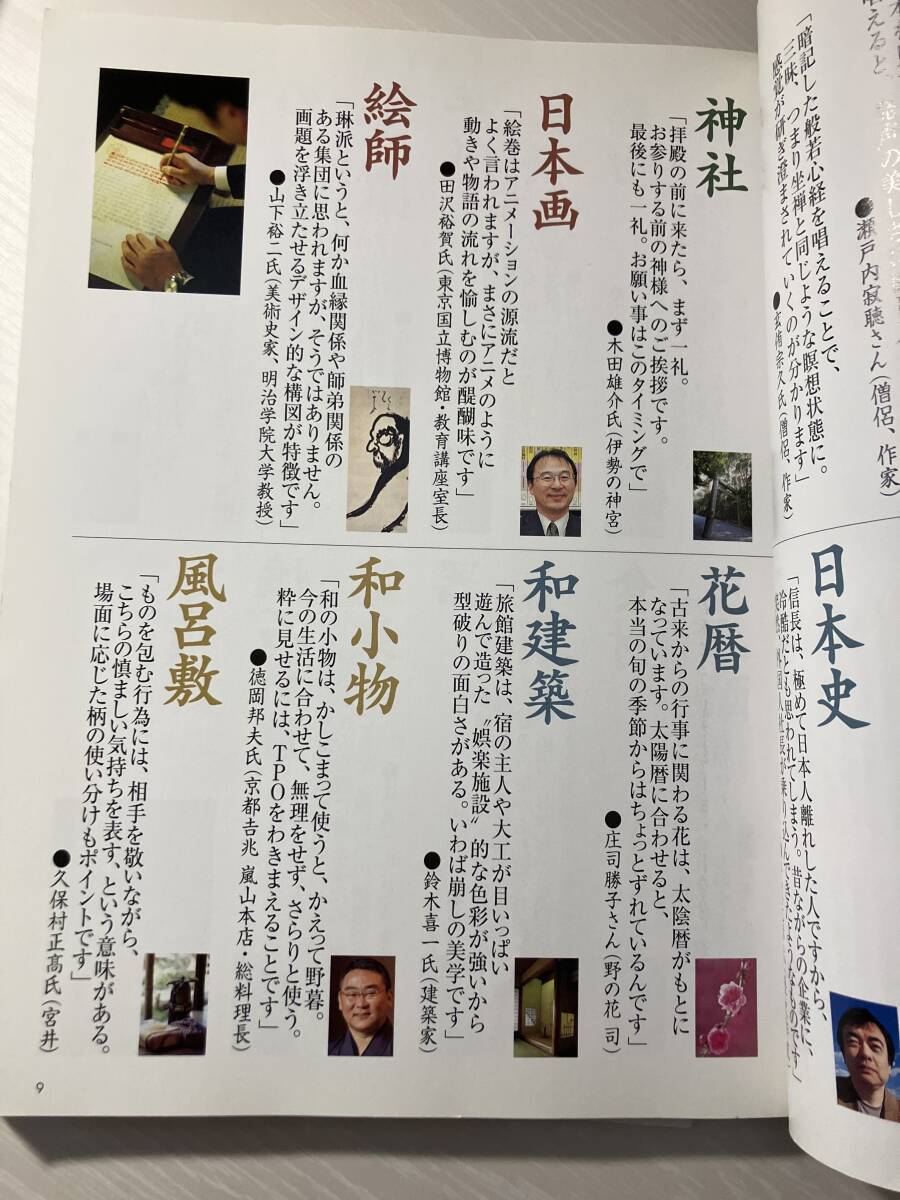 唱えると、
●瀬戸内寂聴さん（僧侶、作家）
「暗記した般若心経を唱えることで、
三昧、つまり坐禅と同じような瞑想状態に。
感覚が研ぎ澄まされていくのが分かります」
●玄侑宗久氏（僧侶、作家）
神社
「拝殿の前に来たら、まず一礼。
お参りする前の神様へのご挨拶です。
最後にも一礼。お願い事はこのタイミングで」
●木田雄介氏（伊勢の神宮）
日本画
「絵巻はアニメーションの源流だと
よく言われますが、まさにアニメのように
動きや物語の流れを愉しむのが醍醐味です」
●田沢裕賀氏（東京国立博物館・教育講座室長）
絵師
「琳派というと、何か血縁関係や師弟関係の
ある集団に思われますが、そうではありません。
画題を浮き立たせるデザイン的な構図が特徴です」
●山下裕二氏（美術史家、明治学院大学教授）
日本史
「信長は、極めて日本人離れした人ですから、
冷酷だとも思われてしまう。昔ながらの企業に、
外国人社長が乗り込んできたようなものです」
花暦
「古来からの行事に関わる花は、太陰暦がもとに
なっています。太陽暦に合わせると、
本当の旬の季節からはちょっとずれているんです」
●庄司勝子さん（野の花 司）
和建築
「旅館建築は、宿の主人や大工が目いっぱい
遊んで造った〝娯楽施設〟的な色彩が強いから
型破りの面白さがある。いわば崩しの美学です」
●鈴木喜一氏（建築家）
和小物
「和の小物は、かしこまって使うと、かえって野暮。
今の生活に合わせて、無理をせず、さらりと使う。
粋に見せるには、TPOをわきまえることです」
●徳岡邦夫氏（京都吉兆 嵐山本店・総料理長）
風呂敷
「ものを包む行為には、相手を敬いながら、
こちらの慎ましい気持ちを表す、という意味がある。
場面に応じた柄の使い分けもポイントです」
●久保村正髙氏（宮井）
9